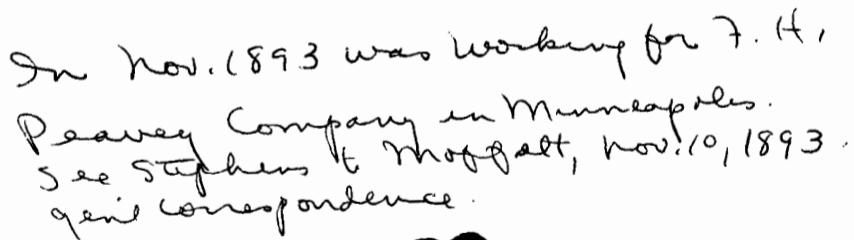 In Nov. 1893 was working for F. H.
Peavey Company in Minneapolis.
See Stephens t Moffatt, Nov. 10, 1893.
gen'l correspondence.